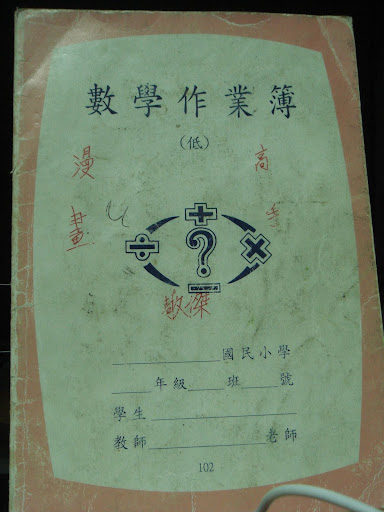 數學作業簿
（低）
漫 高
畫
÷ + ? × −
敏傑
國民小學
年級 班 號
學生
教師 老師
102